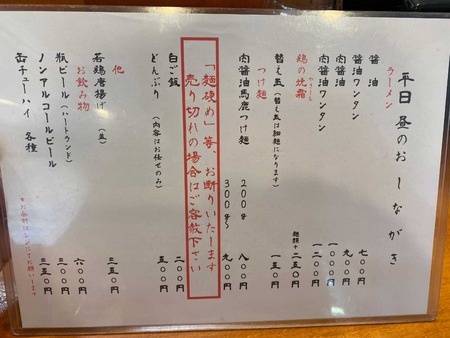 平日 昼のおしながき
ラーメン
醤油 七〇〇円
醤油ワンタン 九〇〇円
肉醤油 一〇〇〇円
肉醤油ワンタン 一二〇〇円
鶏の焼霜 麺類+二五〇円
替え玉(替え玉は細麺になります) 一五〇円
つけ麺
肉醤油馬鹿つけ麺 200g 八〇〇円
300g〜 九〇〇円
「麺硬め」等、お断りいたします
売り切れの場合はご容赦下さい
白ご飯 二〇〇円
どんぶり(内容はお任せのみ) 五〇〇円
他
若鶏唐揚げ(五) 三五〇円
お飲み物
瓶ビール(ハートランド) 六〇〇円
ノンアルコールビール 三〇〇円
缶チューハイ 各種 三五〇円
*お会計はレジにてお願いします